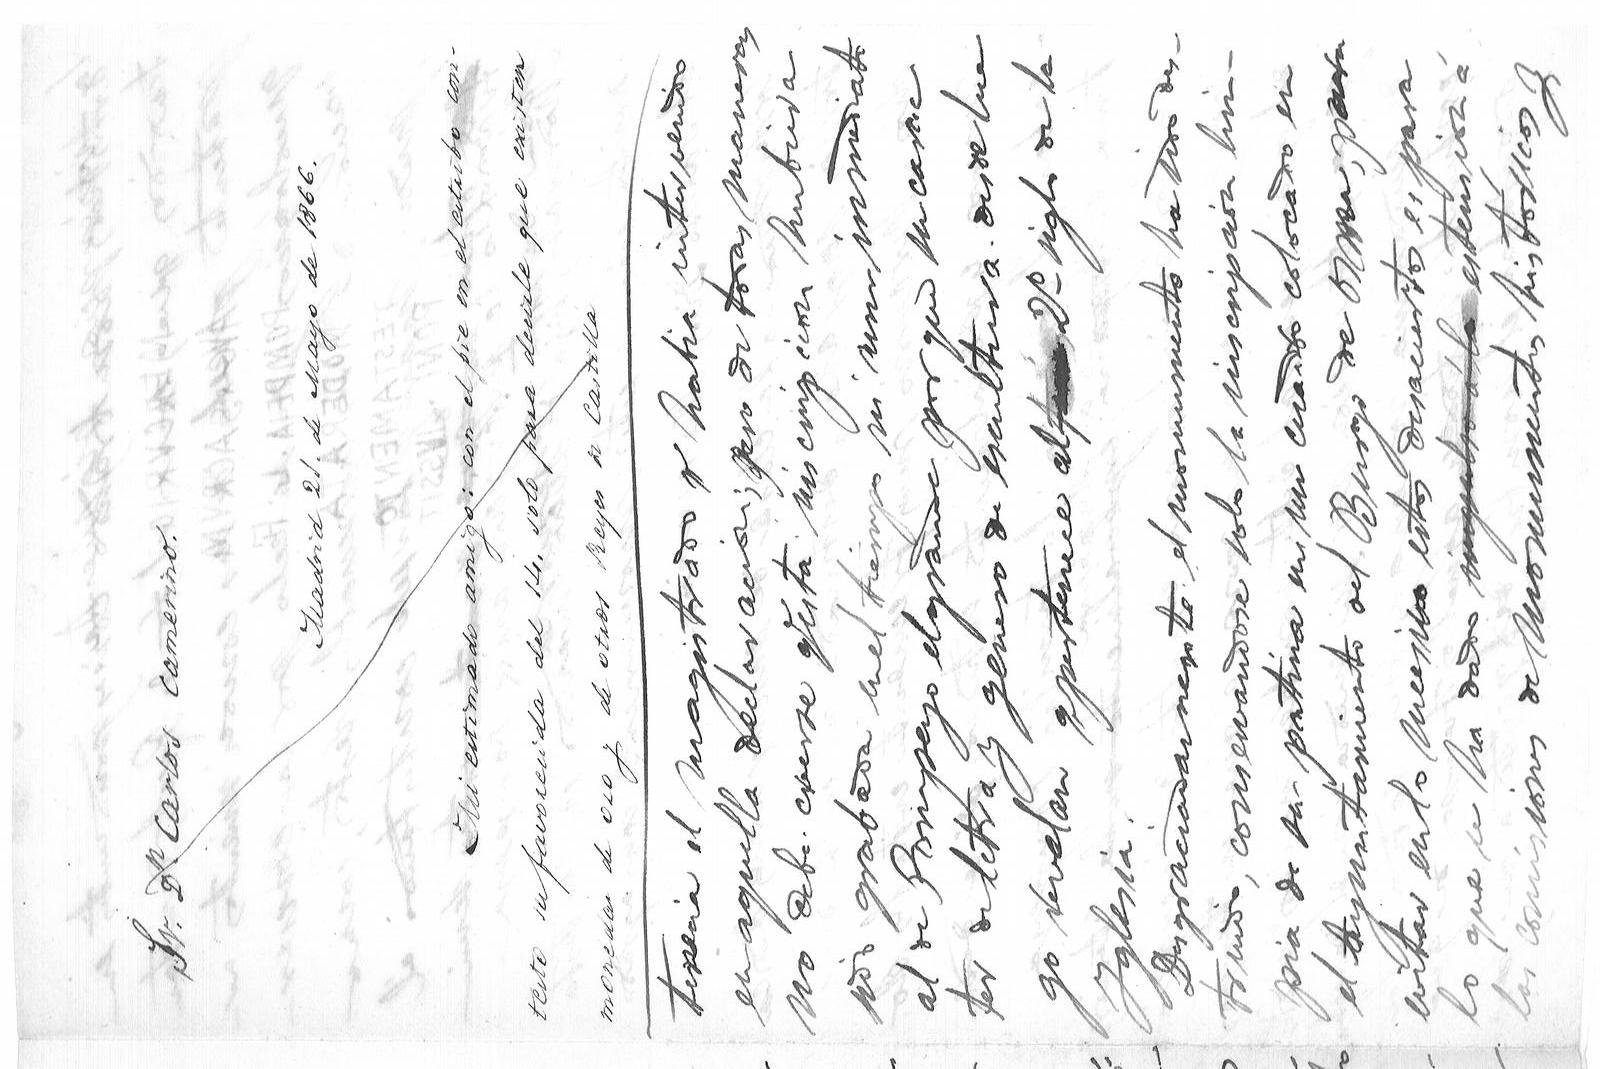 Sr. Dn Carlos Camerino.
Madrid 21. de Mayo de 1866.
Mi estimado amigo: con el pie en el estribo con-
testo su favorecida del 14. solo para decirle que existen
monedas de oro y de otros Reyes de Castilla
tencia el magistrado q habia intervenido
en aquella declaracion; pero de todas maneras
no debe creerse q esta inscripcion hubiera
sido grabada en el tiempo ni inmediato
al de Pompeyo el grande porque su carac
ter de letra y genero de escultura desde lue
go revelan q pertenece al 2º siglo de la
Yglesia.
Desgraciadamente el monumento ha sido des-
truido, conservandose solo la inscripcion lim-
pia de su patina en un cuadro colocado en
el ayuntamiento del Burgo de Osma; para
evitar en lo sucesivo estos desaciertos es para
lo que se ha dado estension á
las comisiones de Monumentos historicos y